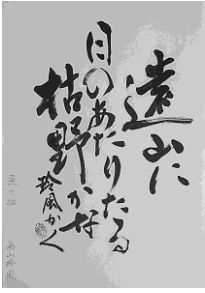 遠山に
日のあたりたる
枯野かな
玲風かく